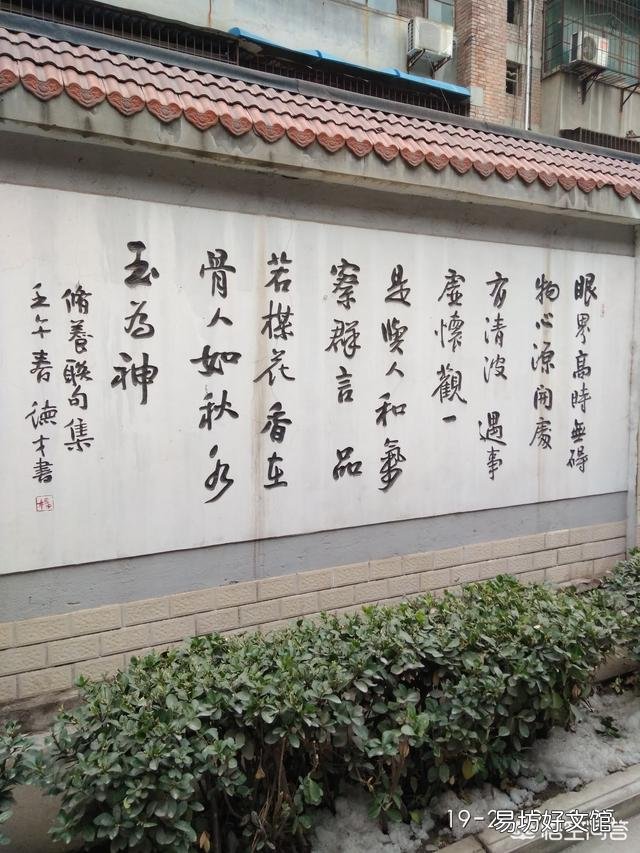 眼界高時無碍
物心源開處
有清波 遇事
虛懷觀一
是與人和氣
察群言 品
若楳花香在
骨人如秋水
玉為神
脩養聯句集
壬午春 德才書
19-2易坊好文馆
悟空问答